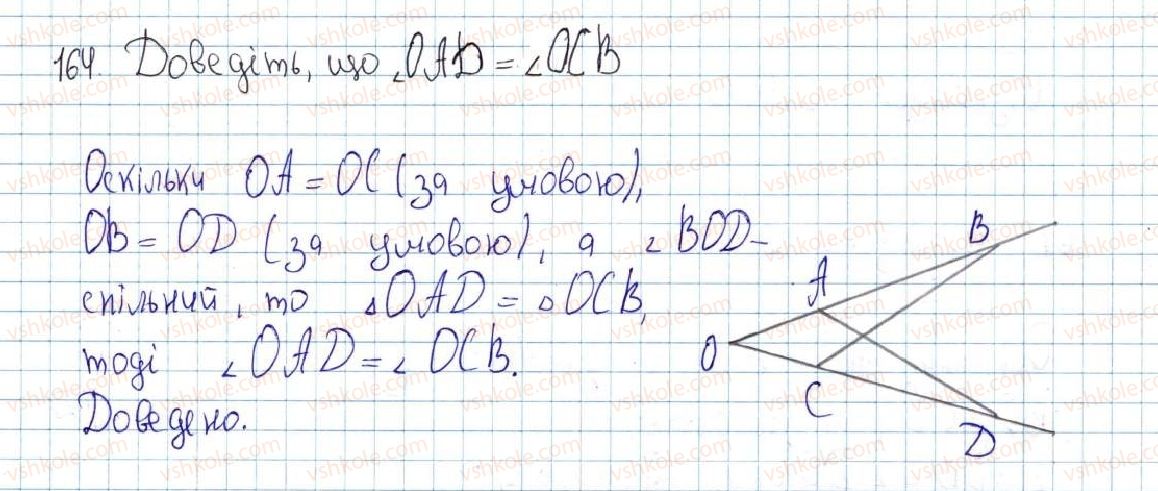 164. Доведіть, що ∠OAD = ∠OCB
Оскільки OA = OC (за умовою),
OB = OD (за умовою), а ∠BOD –
спільний, то △OAD = △OCB,
тоді ∠OAD = ∠OCB.
Доведено.
B
A
O
C
D
vshkole.com